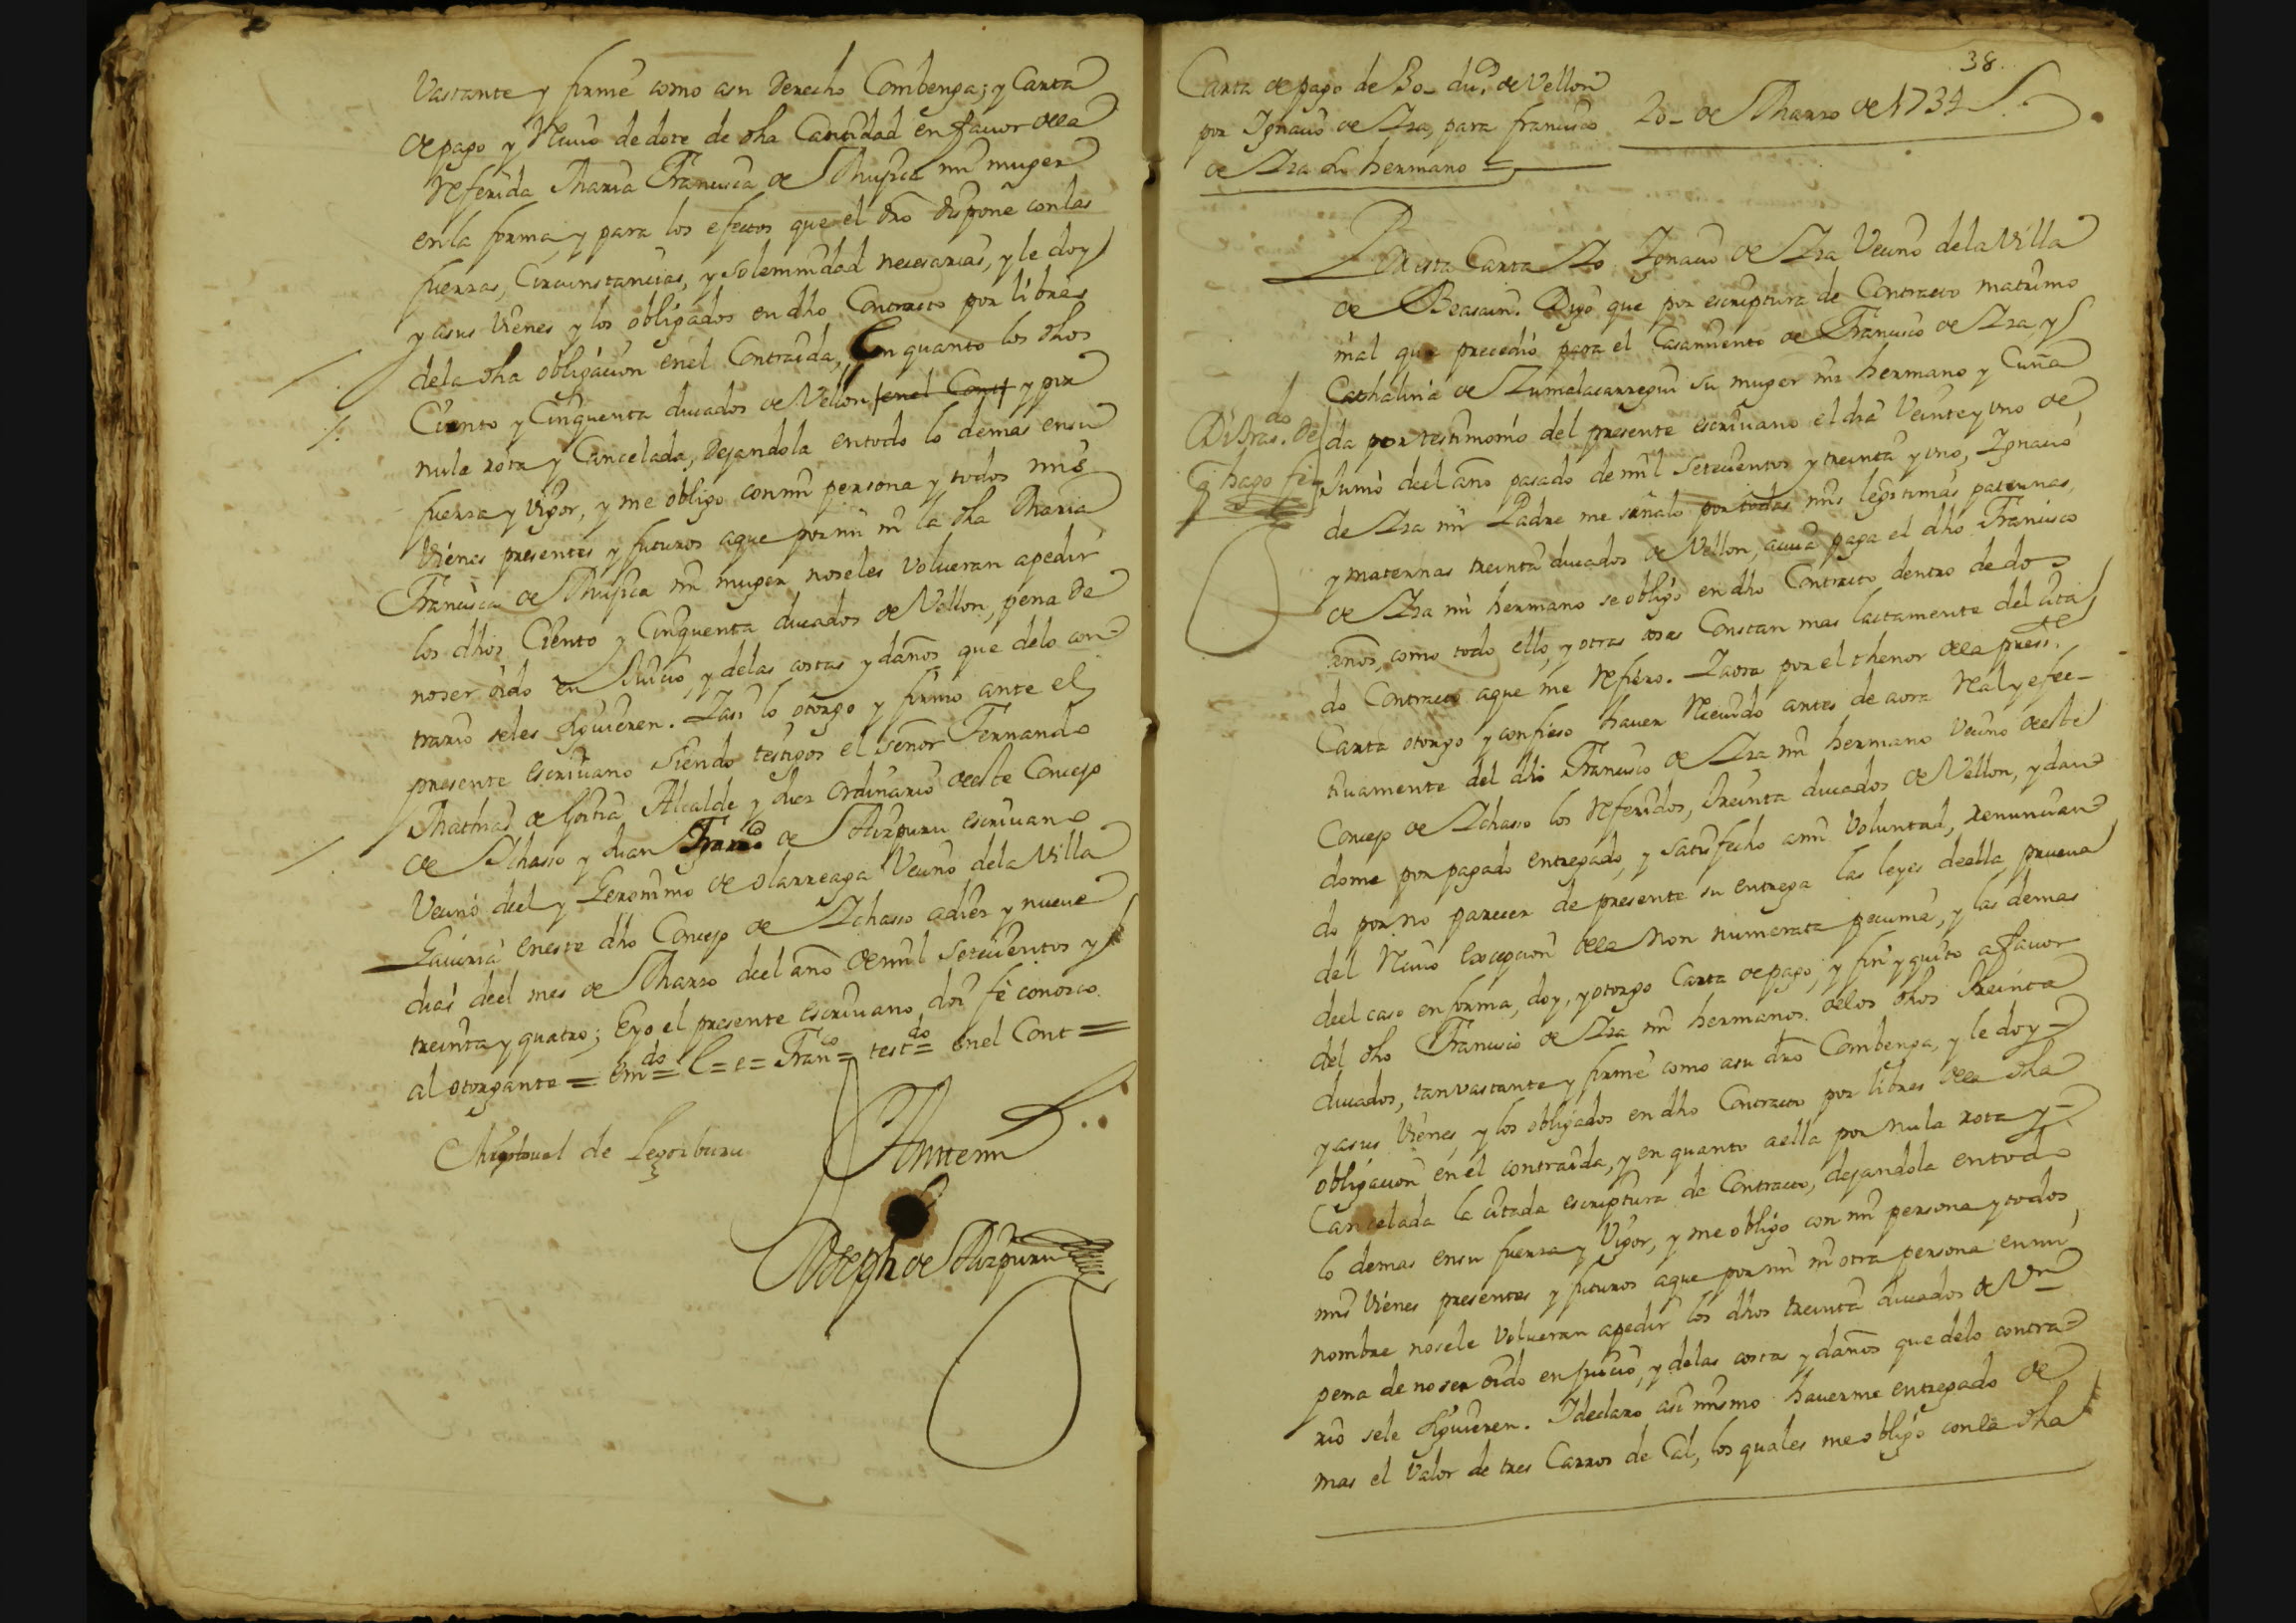 Vastante y firme como asu derecho Combenga; y Carta
de pago y Reciuo de dote de dha Cantidad en fauor dela
Referida Maria Francisca de Mugica mi muger
en la forma, y para los efectos que el dro dispone con las
fuerzas, Circunstancias, y solemnidad necesarias, y le doy
y asus vienes y los obligados en dho Contracto por libres
dela dha obligacion en el Contraida, En quanto los dhos
Ciento y Cinquenta ducados de Vellon en el Cont y por
nula rota y Cancelada, dejandola en todo lo demas en su
fuerza y vigor, y me obligo con mi persona y todos mis
vienes presentes y futuros aque por mi ni la dha Maria
Francisca de Mugica mi muger noseles volueran apedir
los dhos Ciento y Cinquenta ducados de Vellon, pena de
no ser oido en Juicio, y delas costas y daños que delo con-
trario seles siguieren. Y asi lo otorgo y firmo ante el
presente escriuano siendo testigos el señor Fernando
Mathias de Goitia Alcalde y Juez ordinario de este Concejo
de Ichasso y Juan Franco de Aizpuru escriuano
Vecino del y Geronimo de olarreaga Vecino dela Villa
Gauiria en este dho Concejo de Ichasso adiez y nueue
dias del mes de Marzo del año de mil setecientos y
treinta y quatro; E yo el presente escriuano doi fe conozco
al otorgante = Emdo = C = e = Franco = testdo = en el Cont =
Miguel de Legorburu
Ante mi
Joseph de Aizpuru
38.
Carta de pago de 30 dus. de Vellon
por Ignacio de Aza, para francisco
de Aza su hermano =
20 de Marzo de 1734
Por esta Carta Yo Ignacio de Aza Vecino dela Villa
de Beasain. Digo que por escriptura de Contracto matrimo
nial que precedió para el Casamiento de Francisco de Aza, y
Cathalina de Zumalacarregui su muger mi hermano y Cuña
da por testimonio del presente escriuano el dia Veinte y vno de
q hago fe
Junio del año pasado de mil setecientos y treinta y vno, Ignacio
de Aza mi Padre me señaló por todas mis legitimas paternas,
y maternas treinta ducados de Vellon, acuia paga el dho Francisco
de Aza mi hermano se obligó en dho Contracto dentro de dos
años, como todo ello, y otras cosas Constan mas lactamente del cita
do Contracto aque me Refiero. Y aora por el thenor dela presste.
Carta otorgo y confieso hauer Reciuido antes de aora Real y efec-
tiuamente del dho Francisco de Aza mi hermano Vecino de este
Concejo de Ichasso los referidos, treinta ducados de Vellon, y dan
dome por pagado entregado, y satisfecho ami Voluntad, renuncian
do por no parecer de presente su entrega las leyes de ella prueua
del Reciuo excepcion dela Non numerata pecunia, y las demas
del caso en forma, doy, y otorgo Carta de pago; y fin y quito afauor
del dho Francisco de Aza mi hermano. delos dhos treinta
ducados, tan vastante y firme como asu dro Combenga, y le doy
y asus vienes y los obligados en dho Contracto por libres dela dha
obligacion en el contraida, y en quanto aella por nula rota y
Cancelada la citada escriptura de Contracto, dejandola en todo
lo demas en su fuerza y vigor, y me obligo con mi persona y todos
mis vienes presentes y futuros aque por mi ni otra persona en mi
nombre nosele Volueran apedir los dhos treinta ducados de Vn
pena de no ser oido en juicio, y delas costas y daños que delo contra-
rio sele siguieren. Y declaro asi mismo hauerme entregado de
mas el valor de tres Carros de Cal, los quales me obligo con la dha